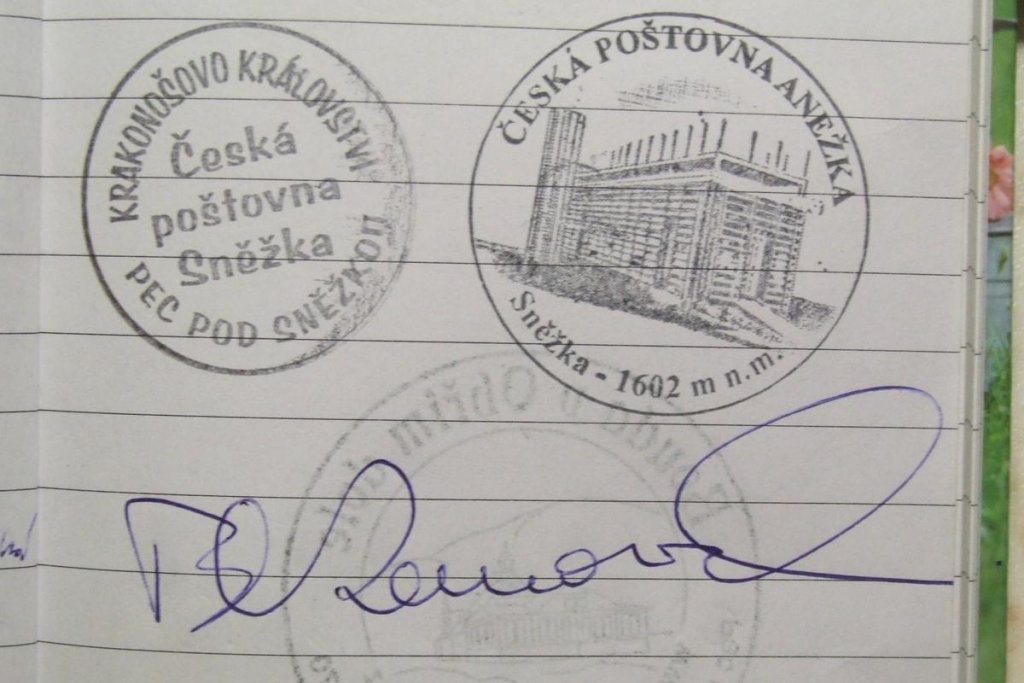 KRAKONOŠOVO KRÁLOVSTVÍ
Česká
poštovna
Sněžka
PEC POD SNĚŽKOU
ČESKÁ POŠTOVNA ANEŽKA
Sněžka - 1602 m n.m.